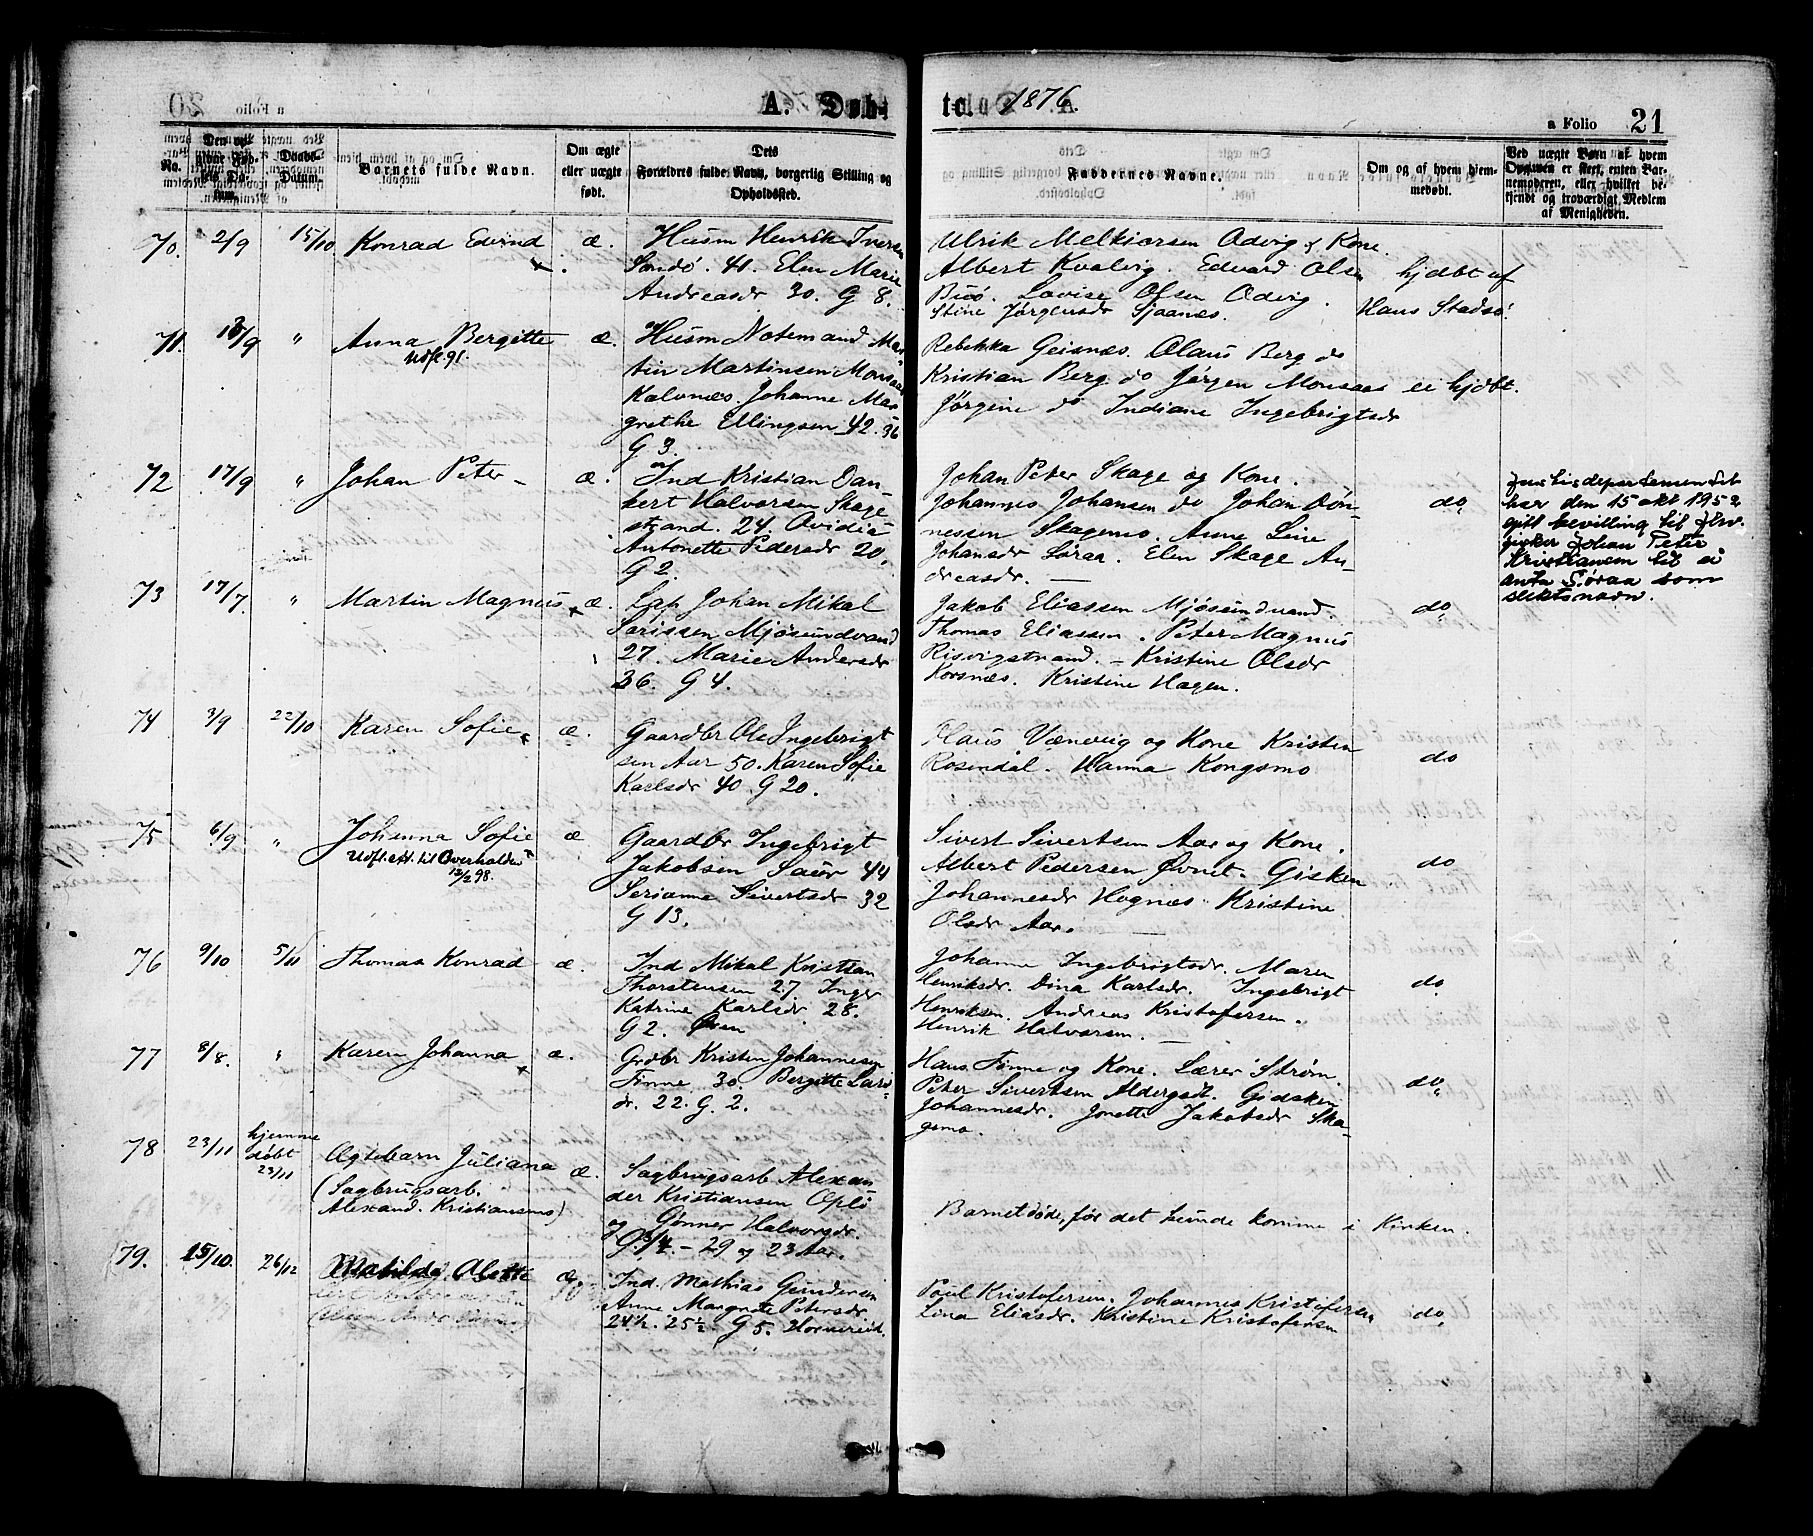 A. Døb-
te. 1876.
a Folio 21
No.
Barnets fulde Navn.
Om ægte
eller uægte
født.
Dets
Forældres fulde Navn, borgerlig Stilling og
Opholdssted.
Faddernes Navne.
Om og af hvem hjem-
medøbt.
Ved uægte Barn af hvem
Opgaven er skeet, enten Bar-
nemoderen, eller hvilket be-
kjendt og troværdigt Medlem
af Menigheden.
70. 2/9 15/10 Konrad Edvind æ.
Husm Henrik Iversen
Sandö. 41. Elen Marie
Andreasdr 30. G 8.
Ulrik Melkiorsen Odvig og Kone.
Albert Kvalvig. Edvard Olsen
Buö. Lovise Olsen Odvig.
Stine Jørgensdr Sjaanes.
hjdbt af
Hans Stadsö.
71. 13/9 " Anna Bergitte æ.
Udfl. 91.
Husm Notemand Mar-
tin Martinsen Monsaas
Kalvnæs. Johanne Mar
grethe Ellingsen 42. 36
G 3.
Rebekka Geisnæs. Olaus Berg do
Kristian Berg do Jørgen Monsaas
Jørgine do Indiane Ingebrigtsdr
ei hjdbt.
72 17/9 " Johan Peter - æ.
Ind Kristian Dan-
kert Halvorsen Skage
strand. 24. Ovidia
Antonette Pedersdr 20.
G 2.
Johan Peter Skage og Kone.
Johannes Johansen do Johan Døn-
nessen Skagemo. Anne Line
Johansdr Løraa. Elen Skage An-
dreasdr. —
do.
Justisdepartementet
har den 15 okt 1952
gitt bevilling til
Johan Peter
Kristiansen til å
anta Søraa som
slektsnavn.
73 17/7. " Martin Magnus æ.
Lap Johan Mikal
Larissen Mjösundvand
27. Marie Andersdr
36. G 4.
Jakob Eliassen Mjösundvand.
Thomas Eliassen. Peter Magnus
Risvigstrand. - Kristine Olsdr
Korsnæs. Kristine Hagen.
do.
74 3/9 22/10 Karen Sofie æ.
Gaardbr Ole Ingebrigt
sen Aar 50. Karen Sofie
Karlsdr 40. G 20.
Klaus Vænvig og Kone Kristen
Rosendal. Hanna Kongsmo
do
75 6/9 " Johanna Sofie æ
Udfl. att. til Overhalden
12/2 98.
Gaardbr Ingebrigt
Jakobsen Saur 44
Serianna Sivertsdr 32
G 13.
Sivert Sivertsen Aar og Kone.
Albert Pedersen Øvnet. Gisken
Johannesdr Hognæs. Kristine
Olsdr Aar. —
do
76 9/10 5/11 Thomas Konrad æ.
Ind Mikal Kristian
Thorstensen 27 Inger
Katrine Karlsdr 28.
G 2. Øien
Johanne Ingebrigtsdr. Maren
Henriksdr. Dina Karlsdr. Ingebrigt
Henriksen. Andreas Kristofersen.
Henrik Halvorsen. —
do.
77 8/8. " Karen Johanna æ.
Grdbr Kristen Johannesen
Finne 30. Bergitte Lars
dr. 22. G. 2.
Hans Finne og Kone. Lærer Strøm.
Peter Sivertsen Aldergsl. Gidsken
Johannesdr. Jonette Jakobsdr Ska-
gemo.
do.
78 23/11 hjemme
døbt
23/11
Ægtebarn Juliana æ.
(Sagbrugsarb.
Alexand. Kristiansens)
Sagbrugsarb Alexan
der Kristiansen Oplö
og Gønner Halvorsdr.
G. 3/4 - 29 og 23 Aar.
Barnet døde, før det kunde komme i Kirken.
79. 15/10. 26/12 Matilde Alette æ.
Ind. Mathias Gundersen
Anne Margrete Petersdr
24½. 25½ G 5. Horvereid.
Poul Kristofersen. Johannes Kristofersen
Lina Eliasdr. Kristine Kristofersen
do.